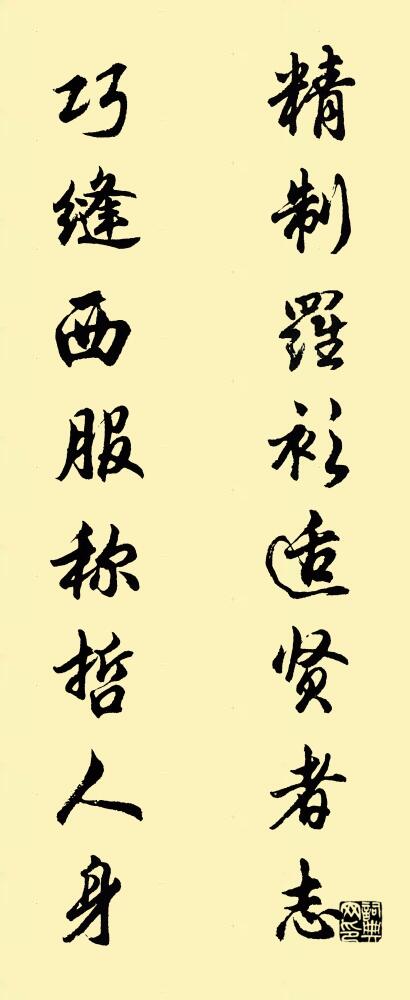 精制羅衫适贤者志
巧缝西服称哲人身
詞典网印